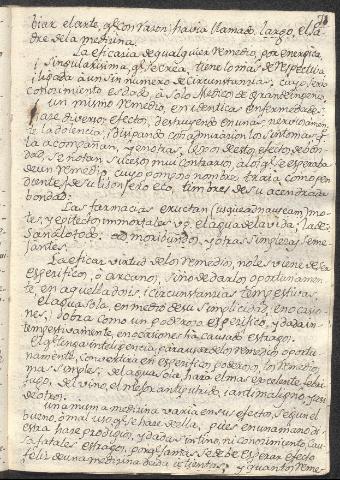 biar el arte, q.e con razon havia llamado, largo, el Pa-
dre de la medicina.
La eficacia de qualquier remedio, por energica,
i singularisima, q.e se crea, tiene lo mas de respectiva,
i ligada à un sin numero de circunstancias; cuyo, serio
conocimiento es dado à solo Medico de grande ingenio.
un mismo remedio, en identica enfermedad,
hace diversos efectos, destruyendo en unas nerviosamen-
te la dolencia; disipando con admiracion los sintomas q.e
la acompañan, y en otras, lexos de esto efecto de bon-
dad, se notan sucesos mui contrarios, a los q.e se esperaba
de un remedio, cuyo pomposo nombre, traia como pen-
dientes de su lisonjero eco, timbres de su acendrada
bondad:
Las farmacias eructan (usque ad nauseam) mo-
tes, y epitetos immortales v.g. el agua de la vida; la de
Sanalotodo: ad moribundos, y otras simplezas seme-
jantes.
La eficaz virtud de los remedios, no les viene de ser
especificos, ò arcanos, sino de darlos oportunamen-
te en aquella dosis, i circunstancias tempestivas.
el agua sola, en medio de su simplicidad, en ocasio-
nes, obra como un poderoso especifico, y dada in-
tempestivamente, en ocaciones ha causado estragos.
El q.e tenga inteligencia, para usar de los remedios oportu-
namente, convertira en especificos poderosos, los remedios,
mas simples; del agua, dia hara el mas excelente febri-
fugo, del vino, el mejor antiputrido, i antimaligno, y asi
de otros:
una misma medicina varia en sus efectos, segun el
bueno, o mal uso, q.e se hace de ella, pues en una mano di-
estra hace prodigios, y dadas sin tino, ni conocimiento, cau-
sa fatales estragos, por q.e jamas se debe esperar efecto
feliz de una medicina dada à tientas; y quantos reme-